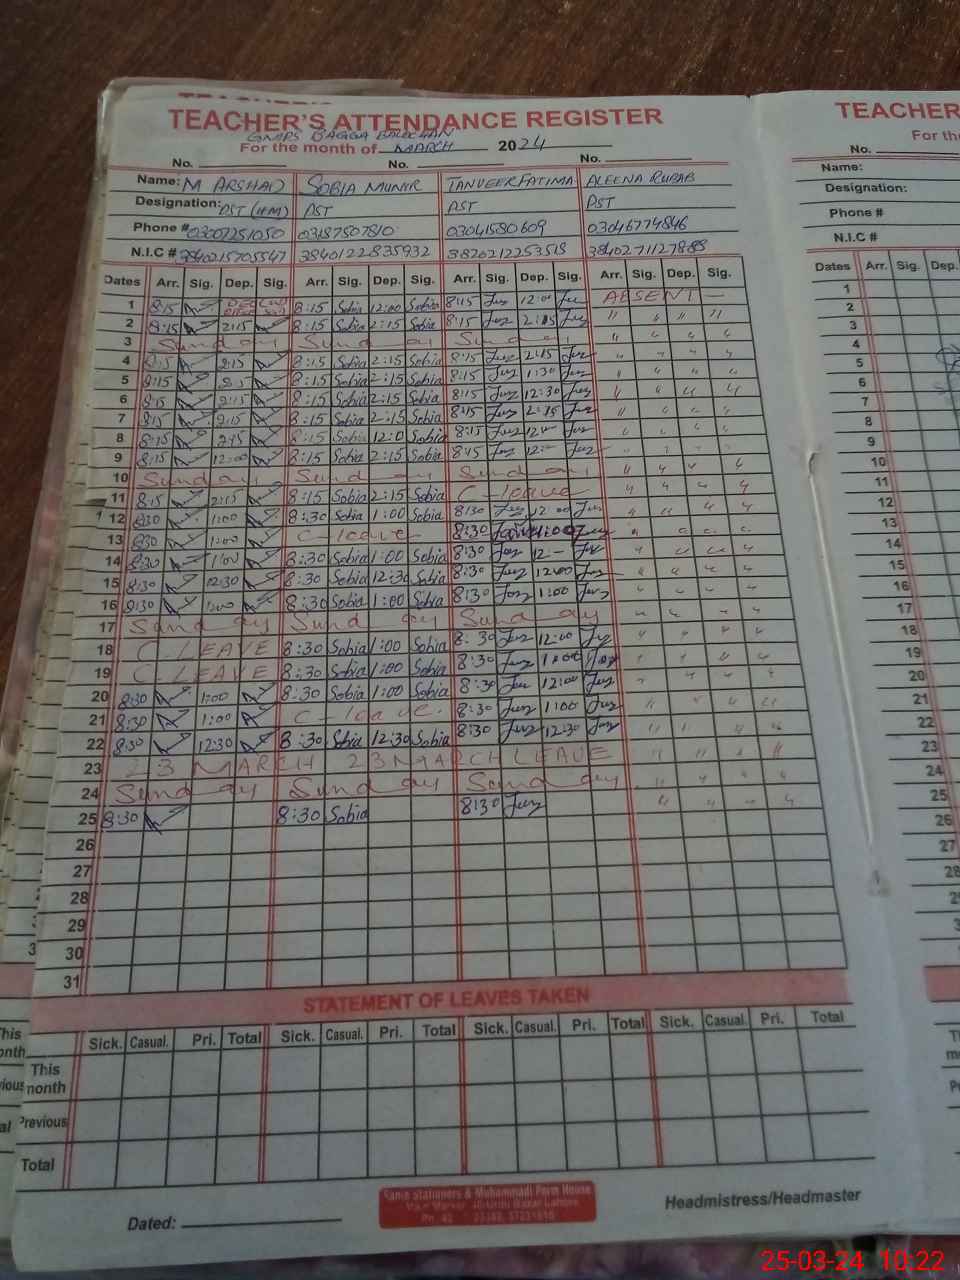 TEACHER'S ATTENDANCE REGISTER
GMPS BAGGA BALOCHAN
For the month of MARCH 2024
No. No. No.
Name: M ARSHAD SOBIA MUNIR TANVEER FATIMA ALEENA RUBAB
Designation: PST (HM) PST PST PST
Phone # 03007251050 03187507810 03041580609 03046774846
N.I.C # 3840215705547 3840122835932 3820212253518
Dates Arr. Sig. Dep. Sig. Arr. Sig. Dep. Sig. Arr. Sig. Dep. Sig. Arr. Sig. Dep. Sig.
1 8:15 8:15 Sobia 12:00 Sobia 8:15 12:00 ABSENT —
2 8:15 2:15 8:15 Sobia 2:15 Sobia 8:15 2:15 " " " "
3 Sunday Sunday Sunday " " " "
4 8:15 2:15 8:15 Sobia 2:15 Sobia 8:15 2:15 " " " "
5 8:15 2:15 8:15 Sobia 2:15 Sobia 8:15 1:30 " " " "
6 8:15 2:15 8:15 Sobia 2:15 Sobia 8:15 12:30 " " " "
7 8:15 2:15 8:15 Sobia 2:15 Sobia 8:15 2:15 " " " "
8 8:15 2:15 8:15 Sobia 12:0 Sobia 8:15 " " " "
9 8:15 12:00 8:15 Sobia 2:15 Sobia 8:15 " " " "
10 Sunday Sunday Sunday " " " "
11 8:15 2:15 8:15 Sobia 2:15 Sobia C-leave " " " "
12 8:30 1:00 8:30 Sobia 1:00 Sobia 8:30 12:00 " " " "
13 8:30 1:00 C-leave 8:30 1:00 " " " "
14 8:30 1:00 8:30 Sobia 1:00 Sobia 8:30 12- " " " "
15 8:30 12:30 8:30 Sobia 12:30 Sobia 8:30 12:00 " " " "
16 8:30 1:00 8:30 Sobia 1:00 Sobia 8:30 1:00 " " " "
17 Sunday Sunday Sunday " " " "
18 C-LEAVE 8:30 Sobia 1:00 Sobia 8:30 12:00 " " " "
19 C-LEAVE 8:30 Sobia 1:00 Sobia 8:30 1:00 " " " "
20 8:30 1:00 8:30 Sobia 1:00 Sobia 8:30 12:00 " " " "
21 8:30 1:00 C-leave. 8:30 1:00 " " " "
22 8:30 12:30 8:30 Sobia 12:30 Sobia 8:30 12:30 " " " "
23 23 MARCH 23 MARCH LEAVE " " " "
24 Sunday Sunday Sunday " " " "
25 8:30 8:30 Sobia 8:30 " " " "
26
27
28
29
30
31
STATEMENT OF LEAVES TAKEN
Sick. Casual. Pri. Total Sick. Casual. Pri. Total Sick. Casual. Pri. Total Sick. Casual. Pri. Total
This
month
Previous
Total
Dated:
Headmistress/Headmaster
Stationers & Muhammadi Form House
Urdu Bazar Lahore
TEACHER
For the
No.
Name:
Designation:
Phone #
N.I.C #
Dates Arr. Sig. Dep.
1
2
3
4
5
6
7
8
9
10
11
12
13
14
15
16
17
18
19
20
21
22
23
24
25
26
27
28
29
30
31
25-03-24 10:22